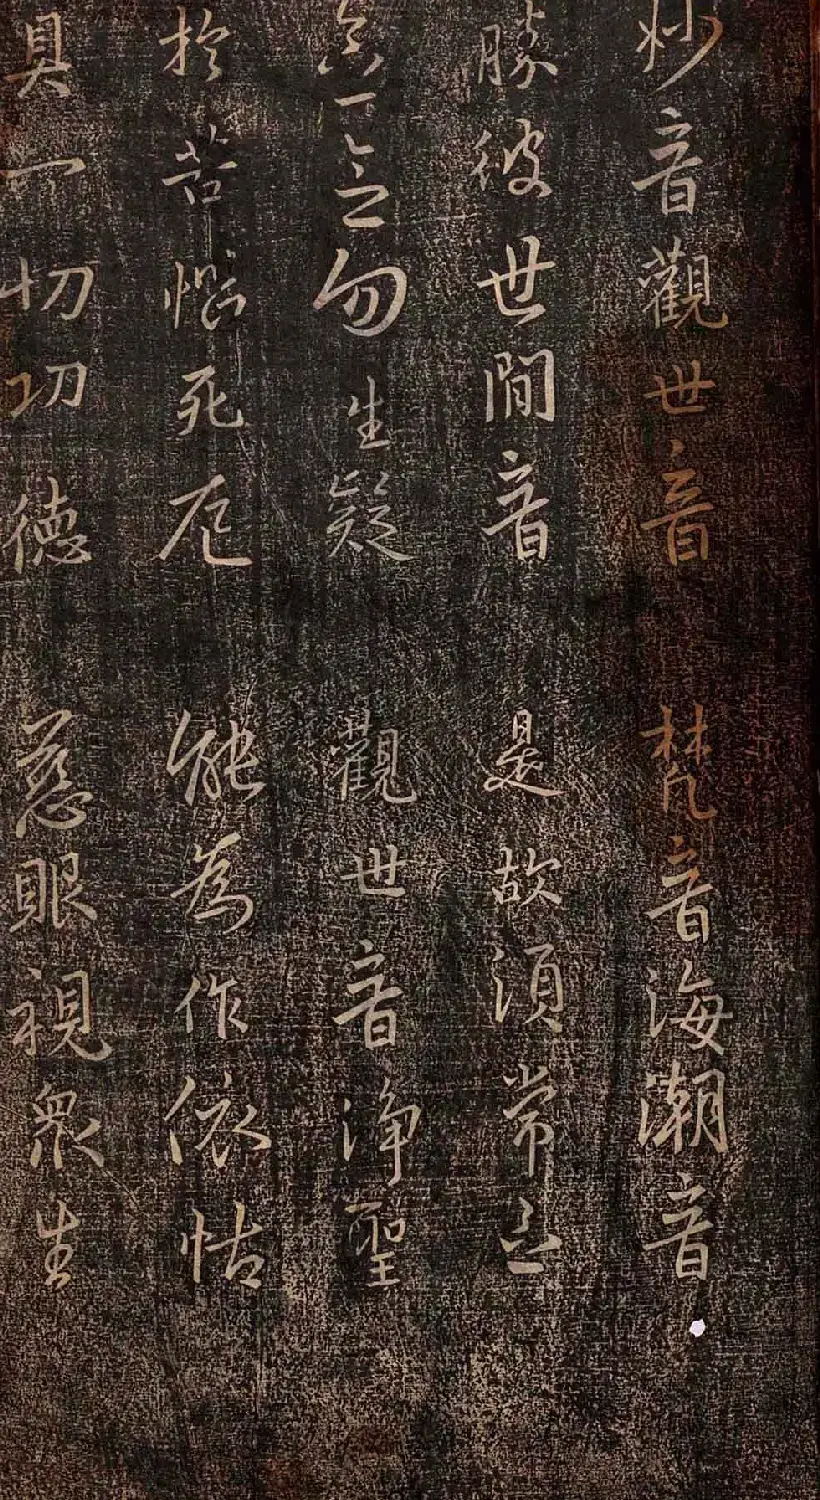 妙音觀世音 梵音海潮音
勝彼世間音 是故須常念
念念勿生疑 觀世音淨聖
於苦惱死厄 能為作依怙
具一切功德 慈眼視眾生